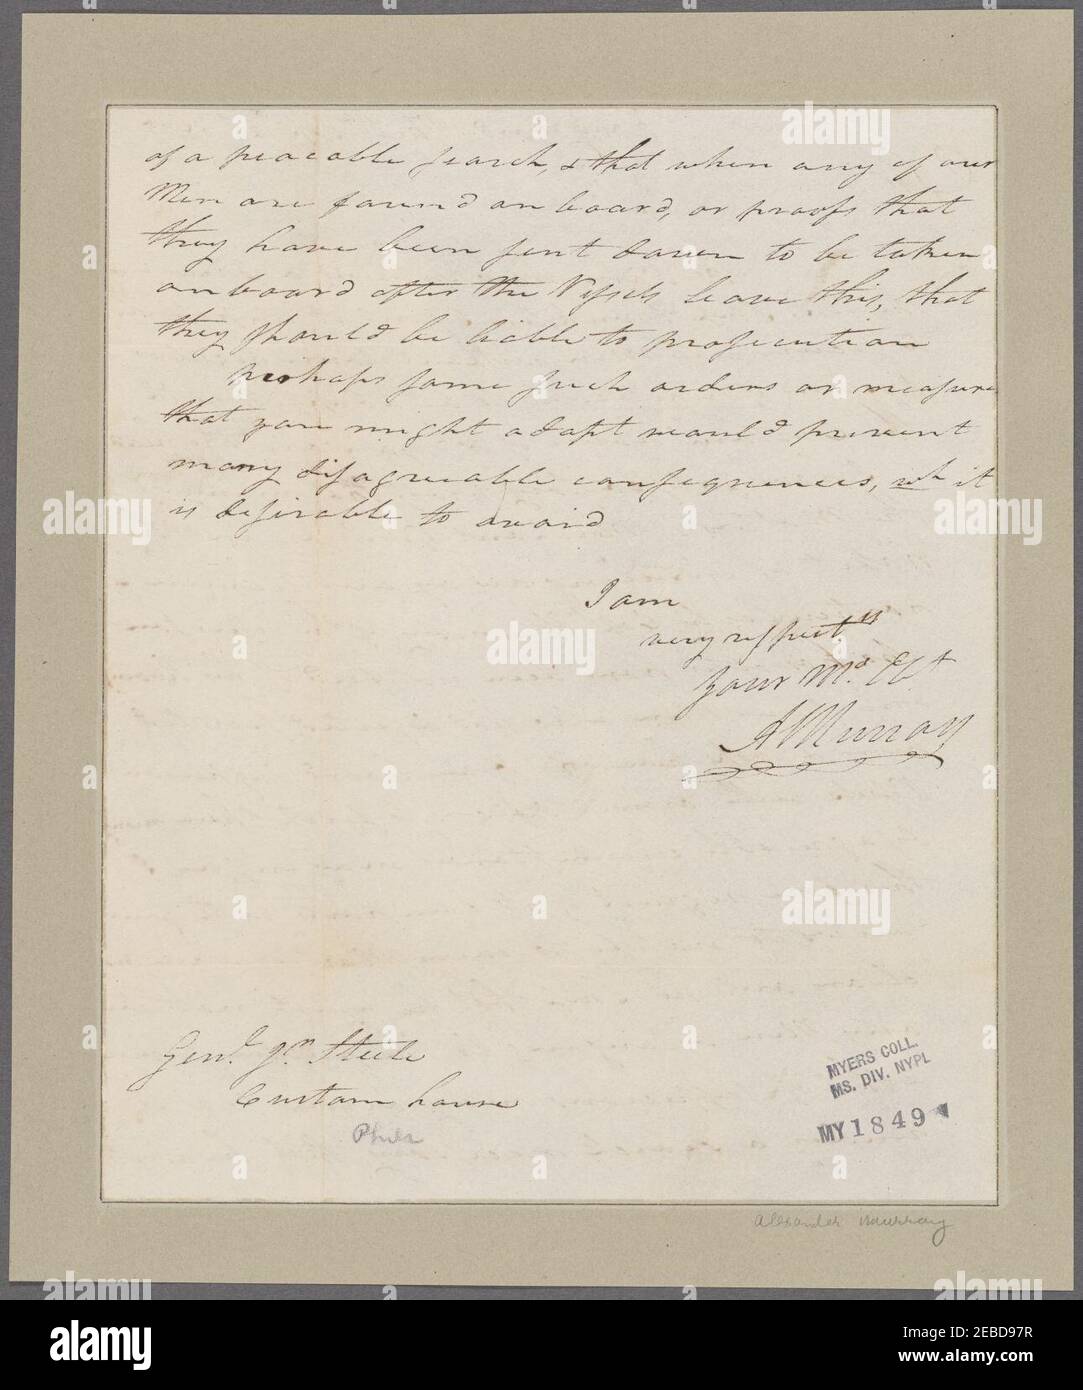 of a peacable search, & that when any of our
Men are found on board, or proofs that
they have been sent down to be taken
on board after the Vessels leave this, that
they should be liable to prosecution
Perhaps some such orders or measure
that you might adopt would prevent
many disagreeable consequences, wh it
is desirable to avoid
I am
very respect.ly
your Mo. Obt
A Murray
Genl. Jn Steele
Custom house
Phila
MYERS COLL.
MS. DIV. NYPL
MY 1849
Alexander Murray
alamy
Image ID: 2EBD97R
www.alamy.com